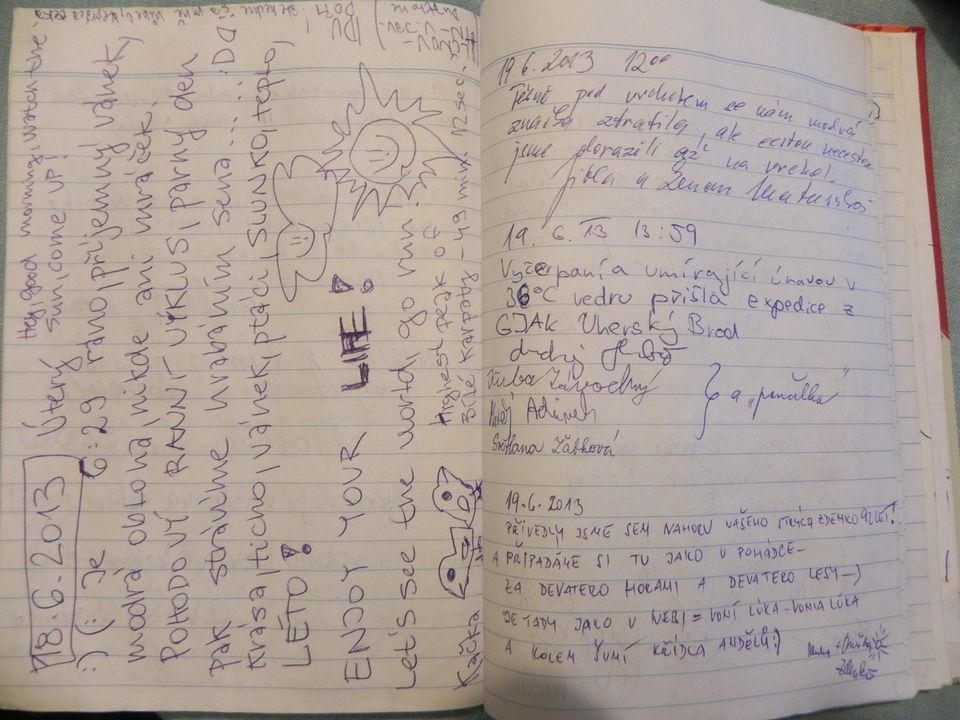 18.6.2013 Úterý Hey, good morning, watch the sun, come up!
:) (: Je 6:29 ráno, příjemný vánek,
modrá obloha, nikde ani mráček.
POHODOVÝ RANNÍ VÝKLUS, parný den
pak strávíme hrabáním sena...:DD
Krása, ticho, vánek, ptáci, SLUNKO, teplo,
LÉTO!
ENJOY YOUR LIFE!
Let's see the world, go run.
Highest peak of
Bílé Karpaty - 49 min. 12 sec.
Kačka
19.6.2013 12°°
Těsně pod vrcholem se nám modrá
značka ztratila, ale cestou necestou
jsme dorazili až na vrchol.
Jitka a Zenon
19. 6. 13 13:59
Vyčerpaní a umírající únavou v
36°C vedru přišla expedice z
GJAK Uherský Brod
Kuba Závodný
Matěj Adámek
Světlana Žábková
a "pančulka"
19.6.2013
PŘIVEDLY JSME SEM NAHORU VAŠEHO STRÝCA ZDENKO 92 LET!
A PŘIPADÁME SI TU JAKO V POHÁDCE-
ZA DEVATERO HORAMI A DEVATERO LESY-)
JE TADY JAKO V NEBI = VONÍ LÚKA - VONIA LÚKA
A KOLEM ŠUMÍ KŘÍDLA ANDĚLŮ:)